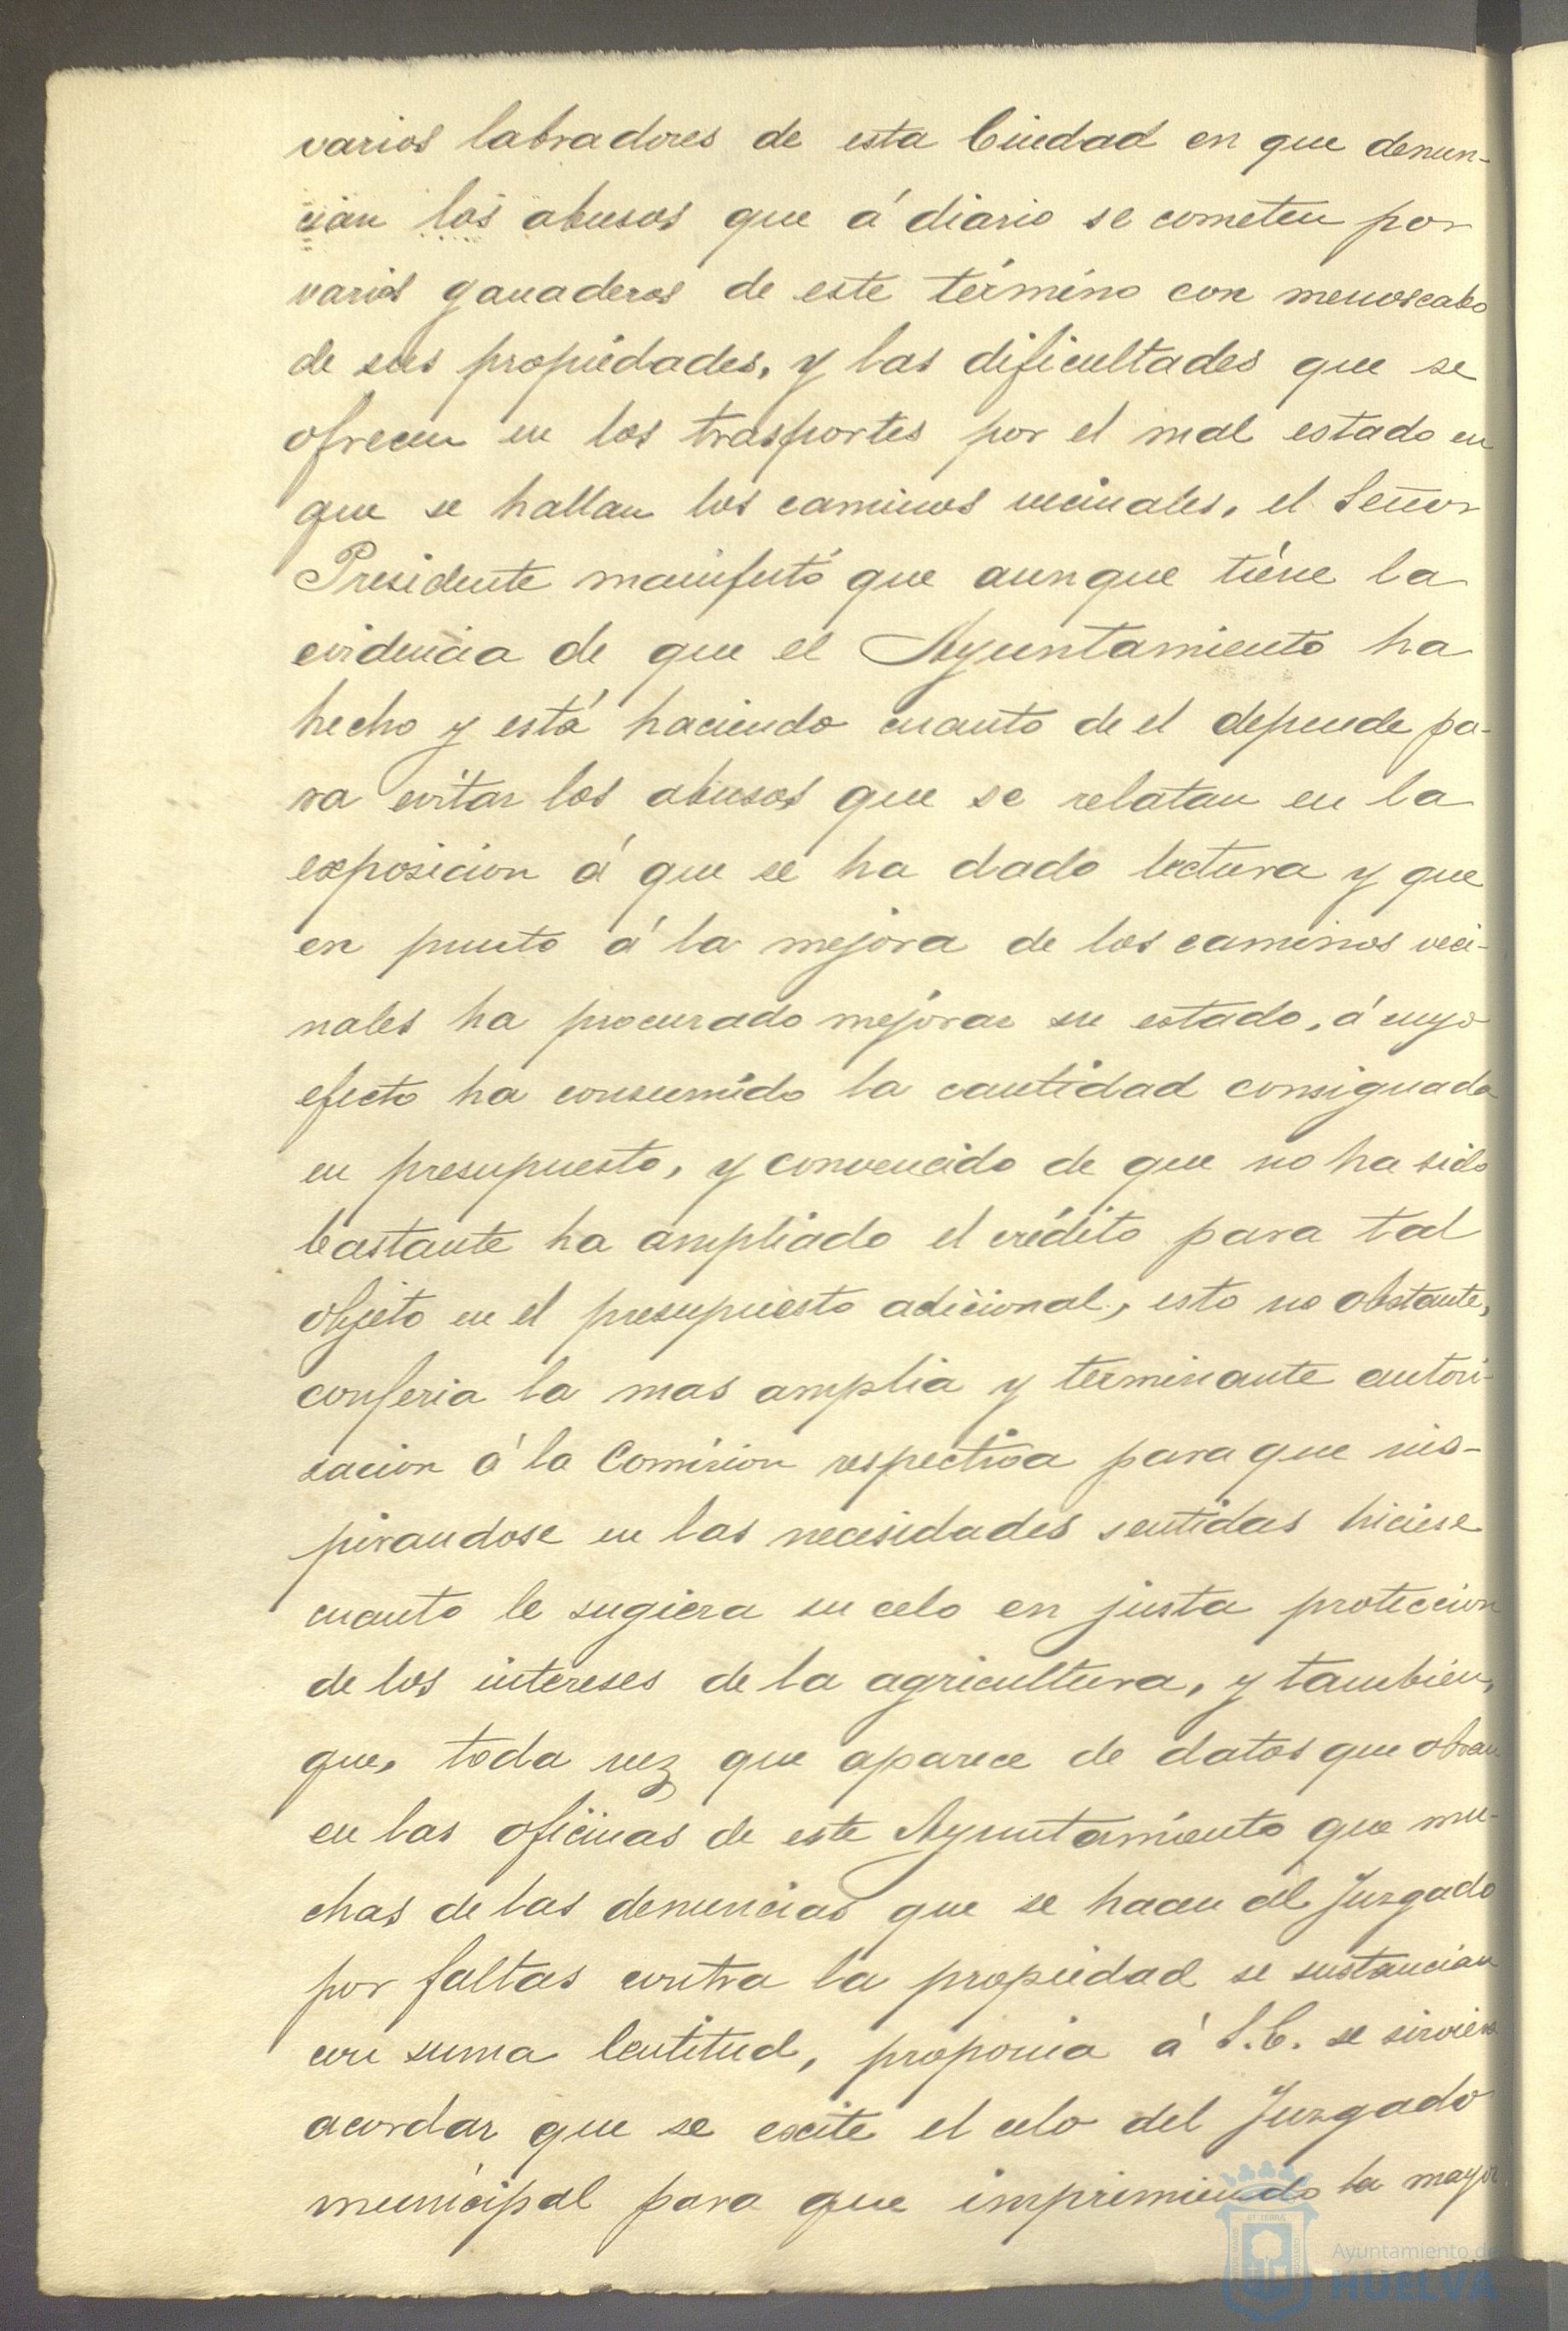 varios labradores de esta Ciudad en que denun-
cian los abusos que á diario se cometen por
varios ganaderos de este término con menoscabo
de sus propiedades, y las dificultades que se
ofrecen en los trasportes por el mal estado en
que se hallan los caminos vecinales, el Señor
Presidente manifestó que aunque tiene la
evidencia de que el Ayuntamiento ha
hecho y está haciendo cuanto de el depende pa-
ra evitar los abusos que se relatan en la
exposicion á que se ha dado lectura y que
en punto á la mejora de los caminos veci-
nales ha procurado mejorar su estado, á cuyo
efecto ha consumido la cantidad consignada
en presupuesto, y convencido de que no ha sido
bastante ha ampliado el crédito para tal
objeto en el presupuesto adicional, esto no obstante,
conferia la mas amplia y terminante autori-
zacion á la Comision respectiva para que ins-
pirandose en las necesidades sentidas hiciese
cuanto le sugiera su celo en justa proteccion
de los intereses de la agricultura, y tambien,
que, toda vez que aparece de datos que obran
en las oficinas de este Ayuntamiento que mu-
chas de las denuncias que se hacen al Juzgado
por faltas contra la propiedad se sustancian
con suma lentitud, proponia á S.C. se sirviera
acordar que se escite el celo del Juzgado
municipal para que imprimiendo la mayor
Ayuntamiento de
HUELVA